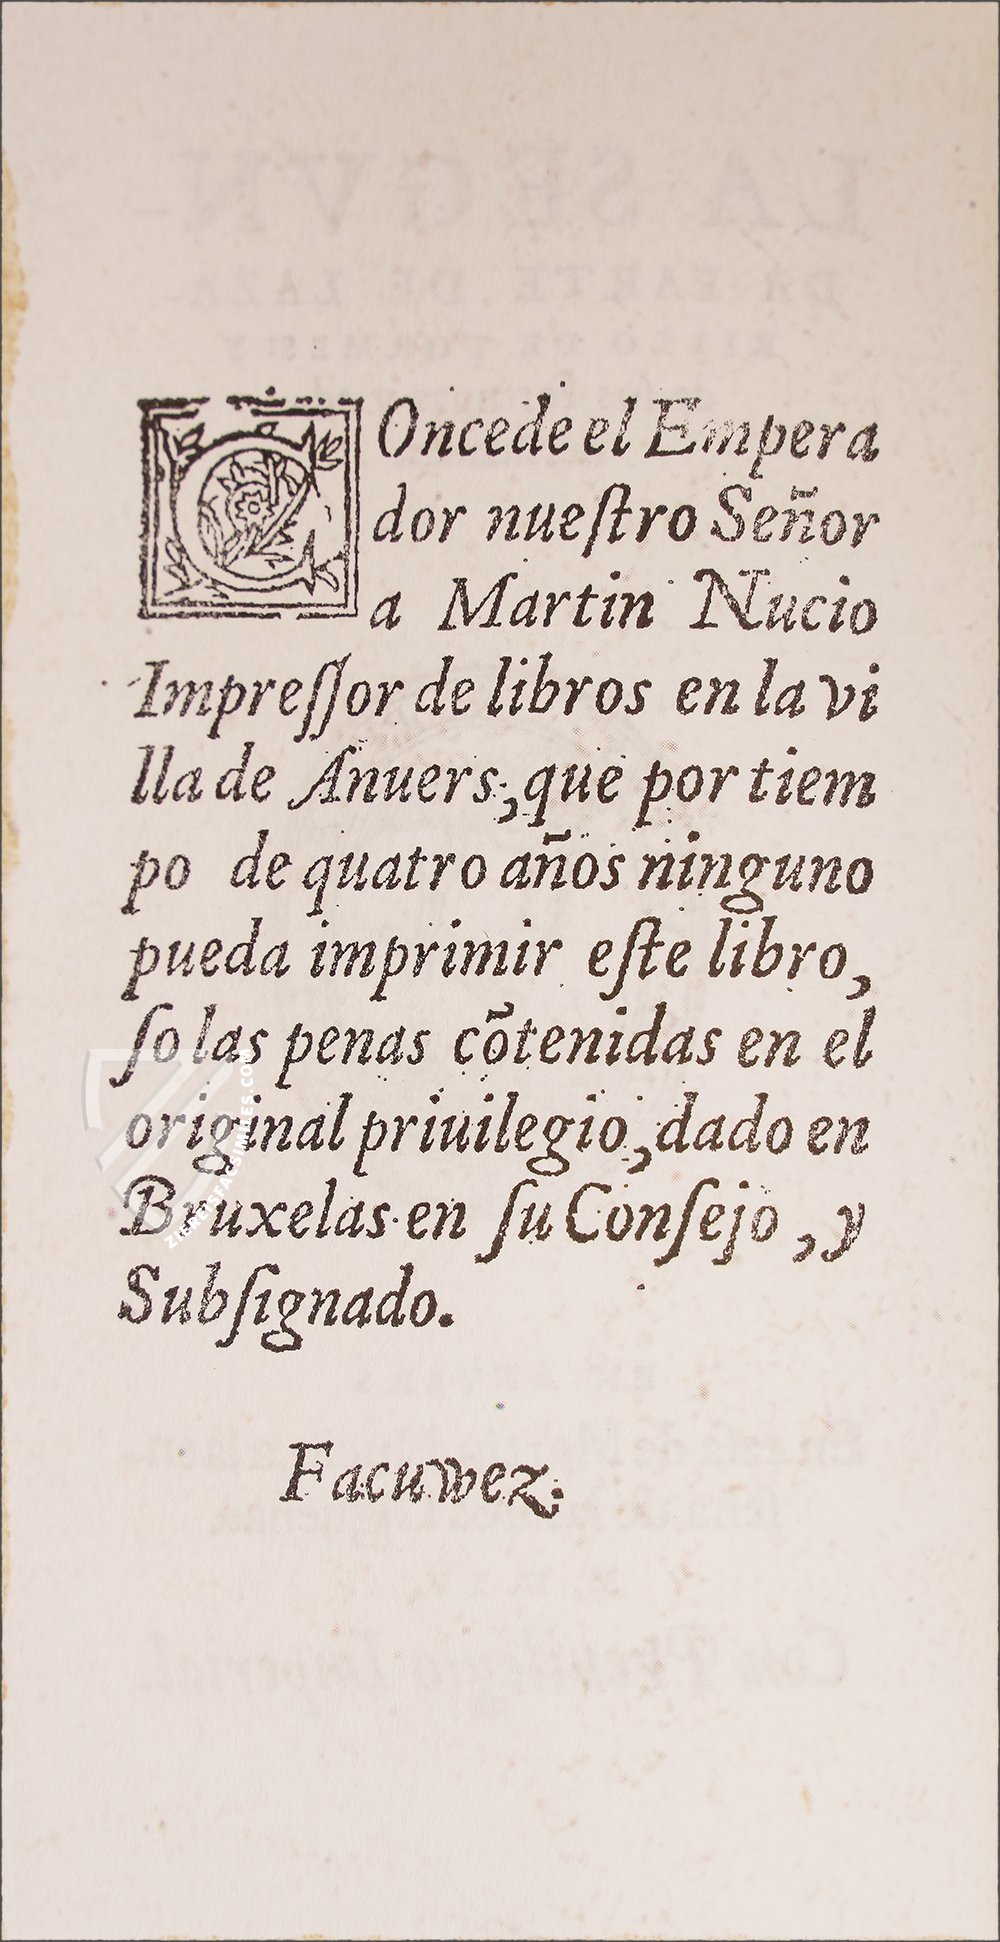 COncede el Empera
dor nueſtro Señor
a Martin Nucio
Impreſſor de libros en la vi
lla de Anuers, que por tiem
po de quatro años ninguno
pueda imprimir eſte libro,
ſo las penas cõtenidas en el
original priuilegio, dado en
Bruxelas en ſu Conſejo, y
Subſignado.
Facuwez.